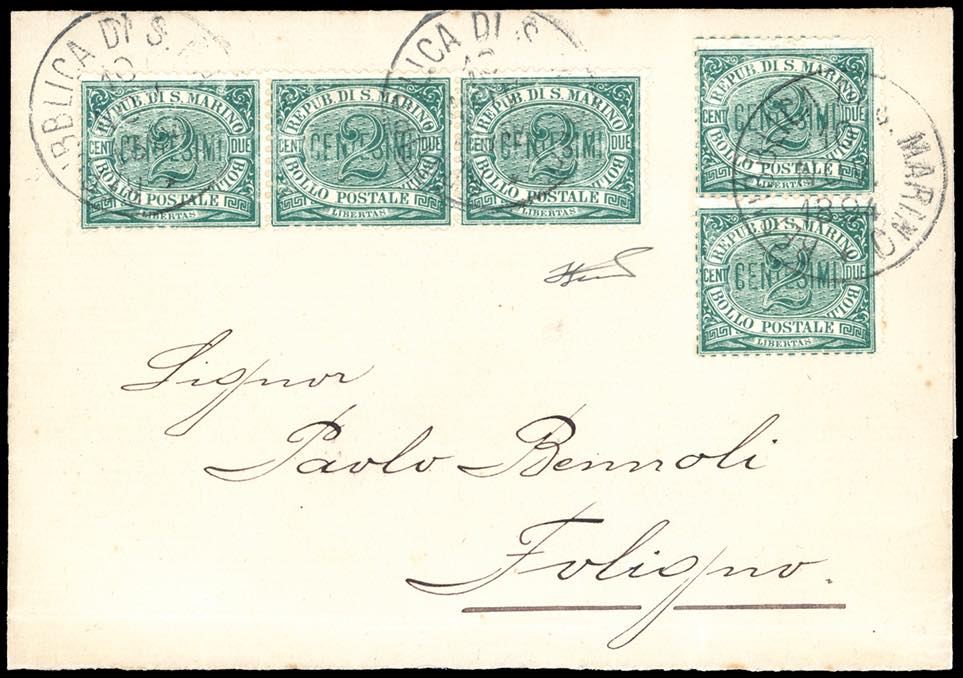 REPUB. DI S. MARINO
CENT 2 CENTESIMI DUE
BOLLO POSTALE BOLL
LIBERTAS
REPUB. DI S. MARINO
CENT 2 CENTESIMI DUE
BOLLO POSTALE BOLL
LIBERTAS
REPUB. DI S. MARINO
CENT 2 CENTESIMI DUE
BOLLO POSTALE BOLL
LIBERTAS
REPUB. DI S. MARINO
CENTESIMI DUE
BOLLO POSTALE BOLL
LIBERTAS
REPUB. DI S. MARINO
CENT 2 CENTESIMI DUE
BOLLO POSTALE BOLL
LIBERTAS
BBLICA DI S.
LICA DI
S. MARINO
1894
Signor
Paolo Bennoli
Foligno.